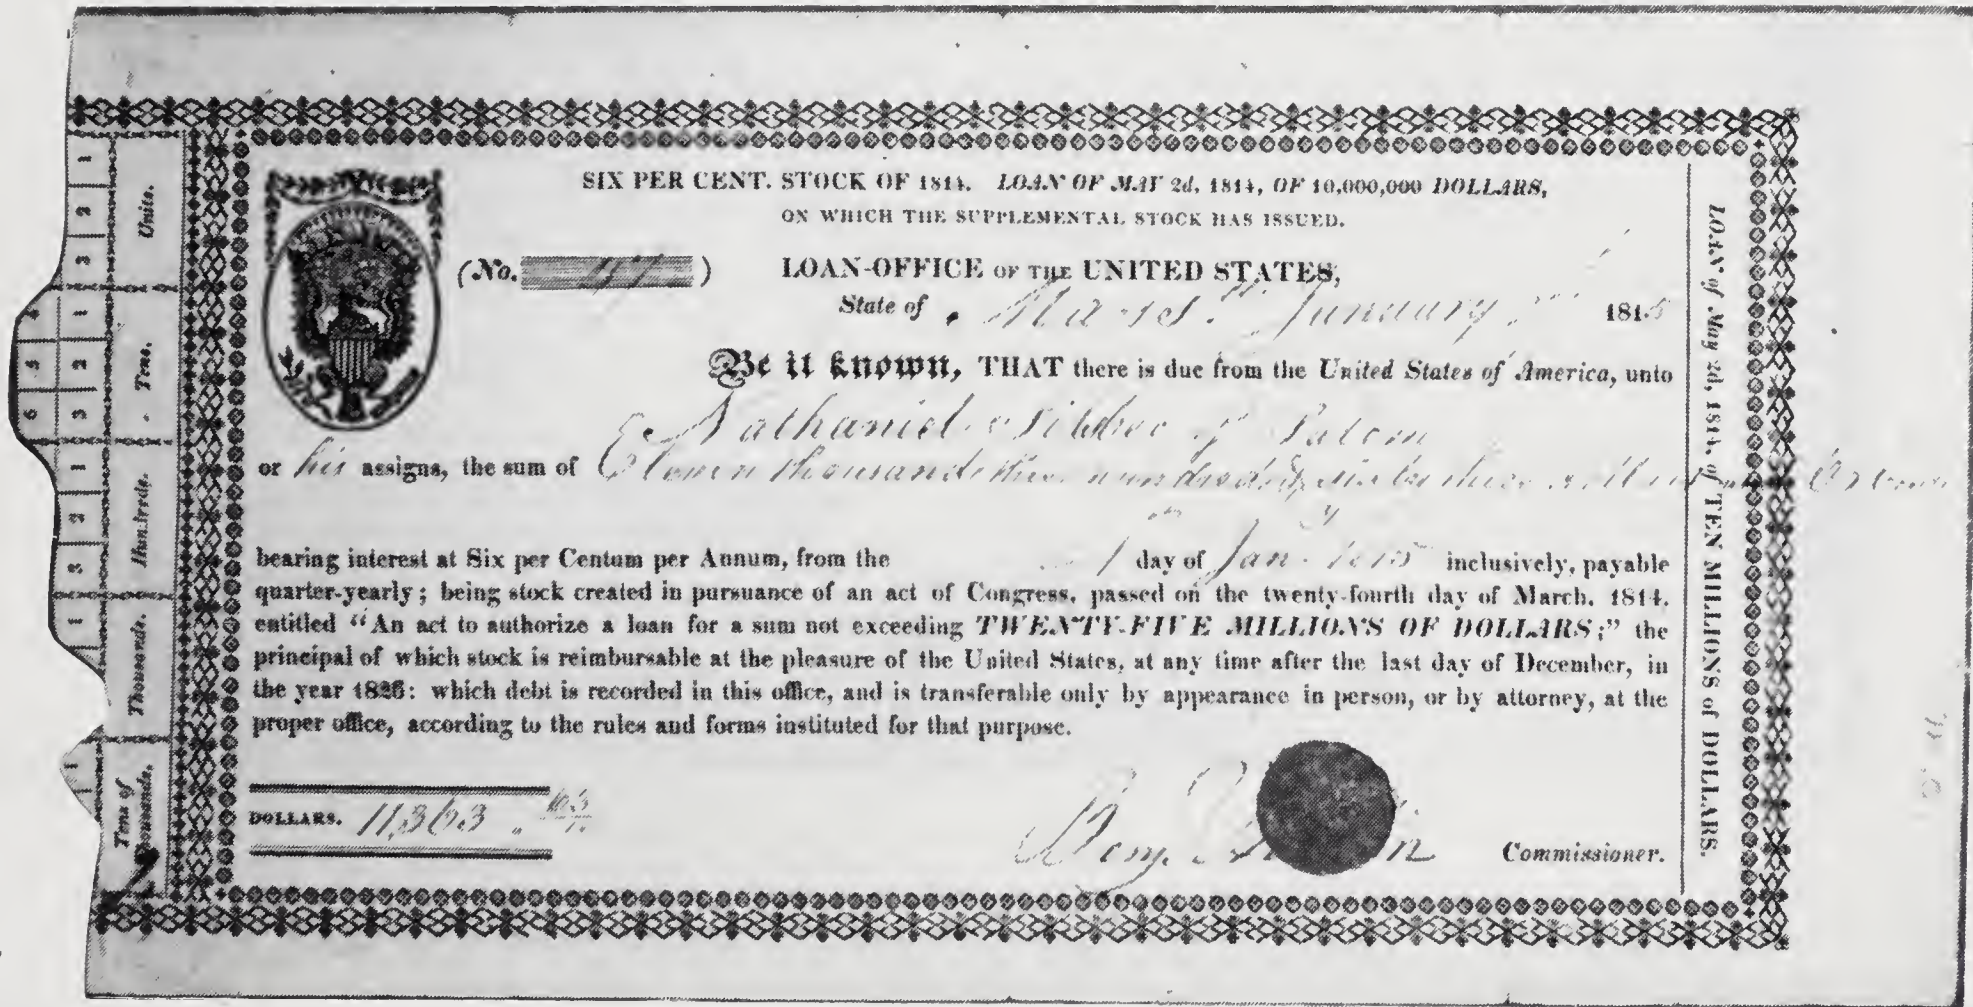 SIX PER CENT. STOCK OF 1814. LOAN OF MAY 2d, 1814, OF 10,000,000 DOLLARS,
ON WHICH THE SUPPLEMENTAL STOCK HAS ISSUED.
(No. )
LOAN-OFFICE OF THE UNITED STATES,
State of Mass. January 1815
Be it known, THAT there is due from the United States of America, unto
Nathaniel Silsbee of Salem
or his assigns, the sum of Eleven thousand three hundred & sixty three
bearing interest at Six per Centum per Annum, from the 1 day of Jany 1815 inclusively, payable
quarter-yearly; being stock created in pursuance of an act of Congress, passed on the twenty-fourth day of March, 1814,
entitled "An act to authorize a loan for a sum not exceeding TWENTY-FIVE MILLIONS OF DOLLARS;" the
principal of which stock is reimbursable at the pleasure of the United States, at any time after the last day of December, in
the year 1826: which debt is recorded in this office, and is transferable only by appearance in person, or by attorney, at the
proper office, according to the rules and forms instituted for that purpose.
DOLLARS. 11,363
Benj.
Commissioner.
LOAN of May 2d, 1814, of TEN MILLIONS of DOLLARS.
Units. 1 2 3
Tens. 1 2 3 4 5 6
Hundreds. 1 2 3
Thousands. 1
Tens of Thousands. 1